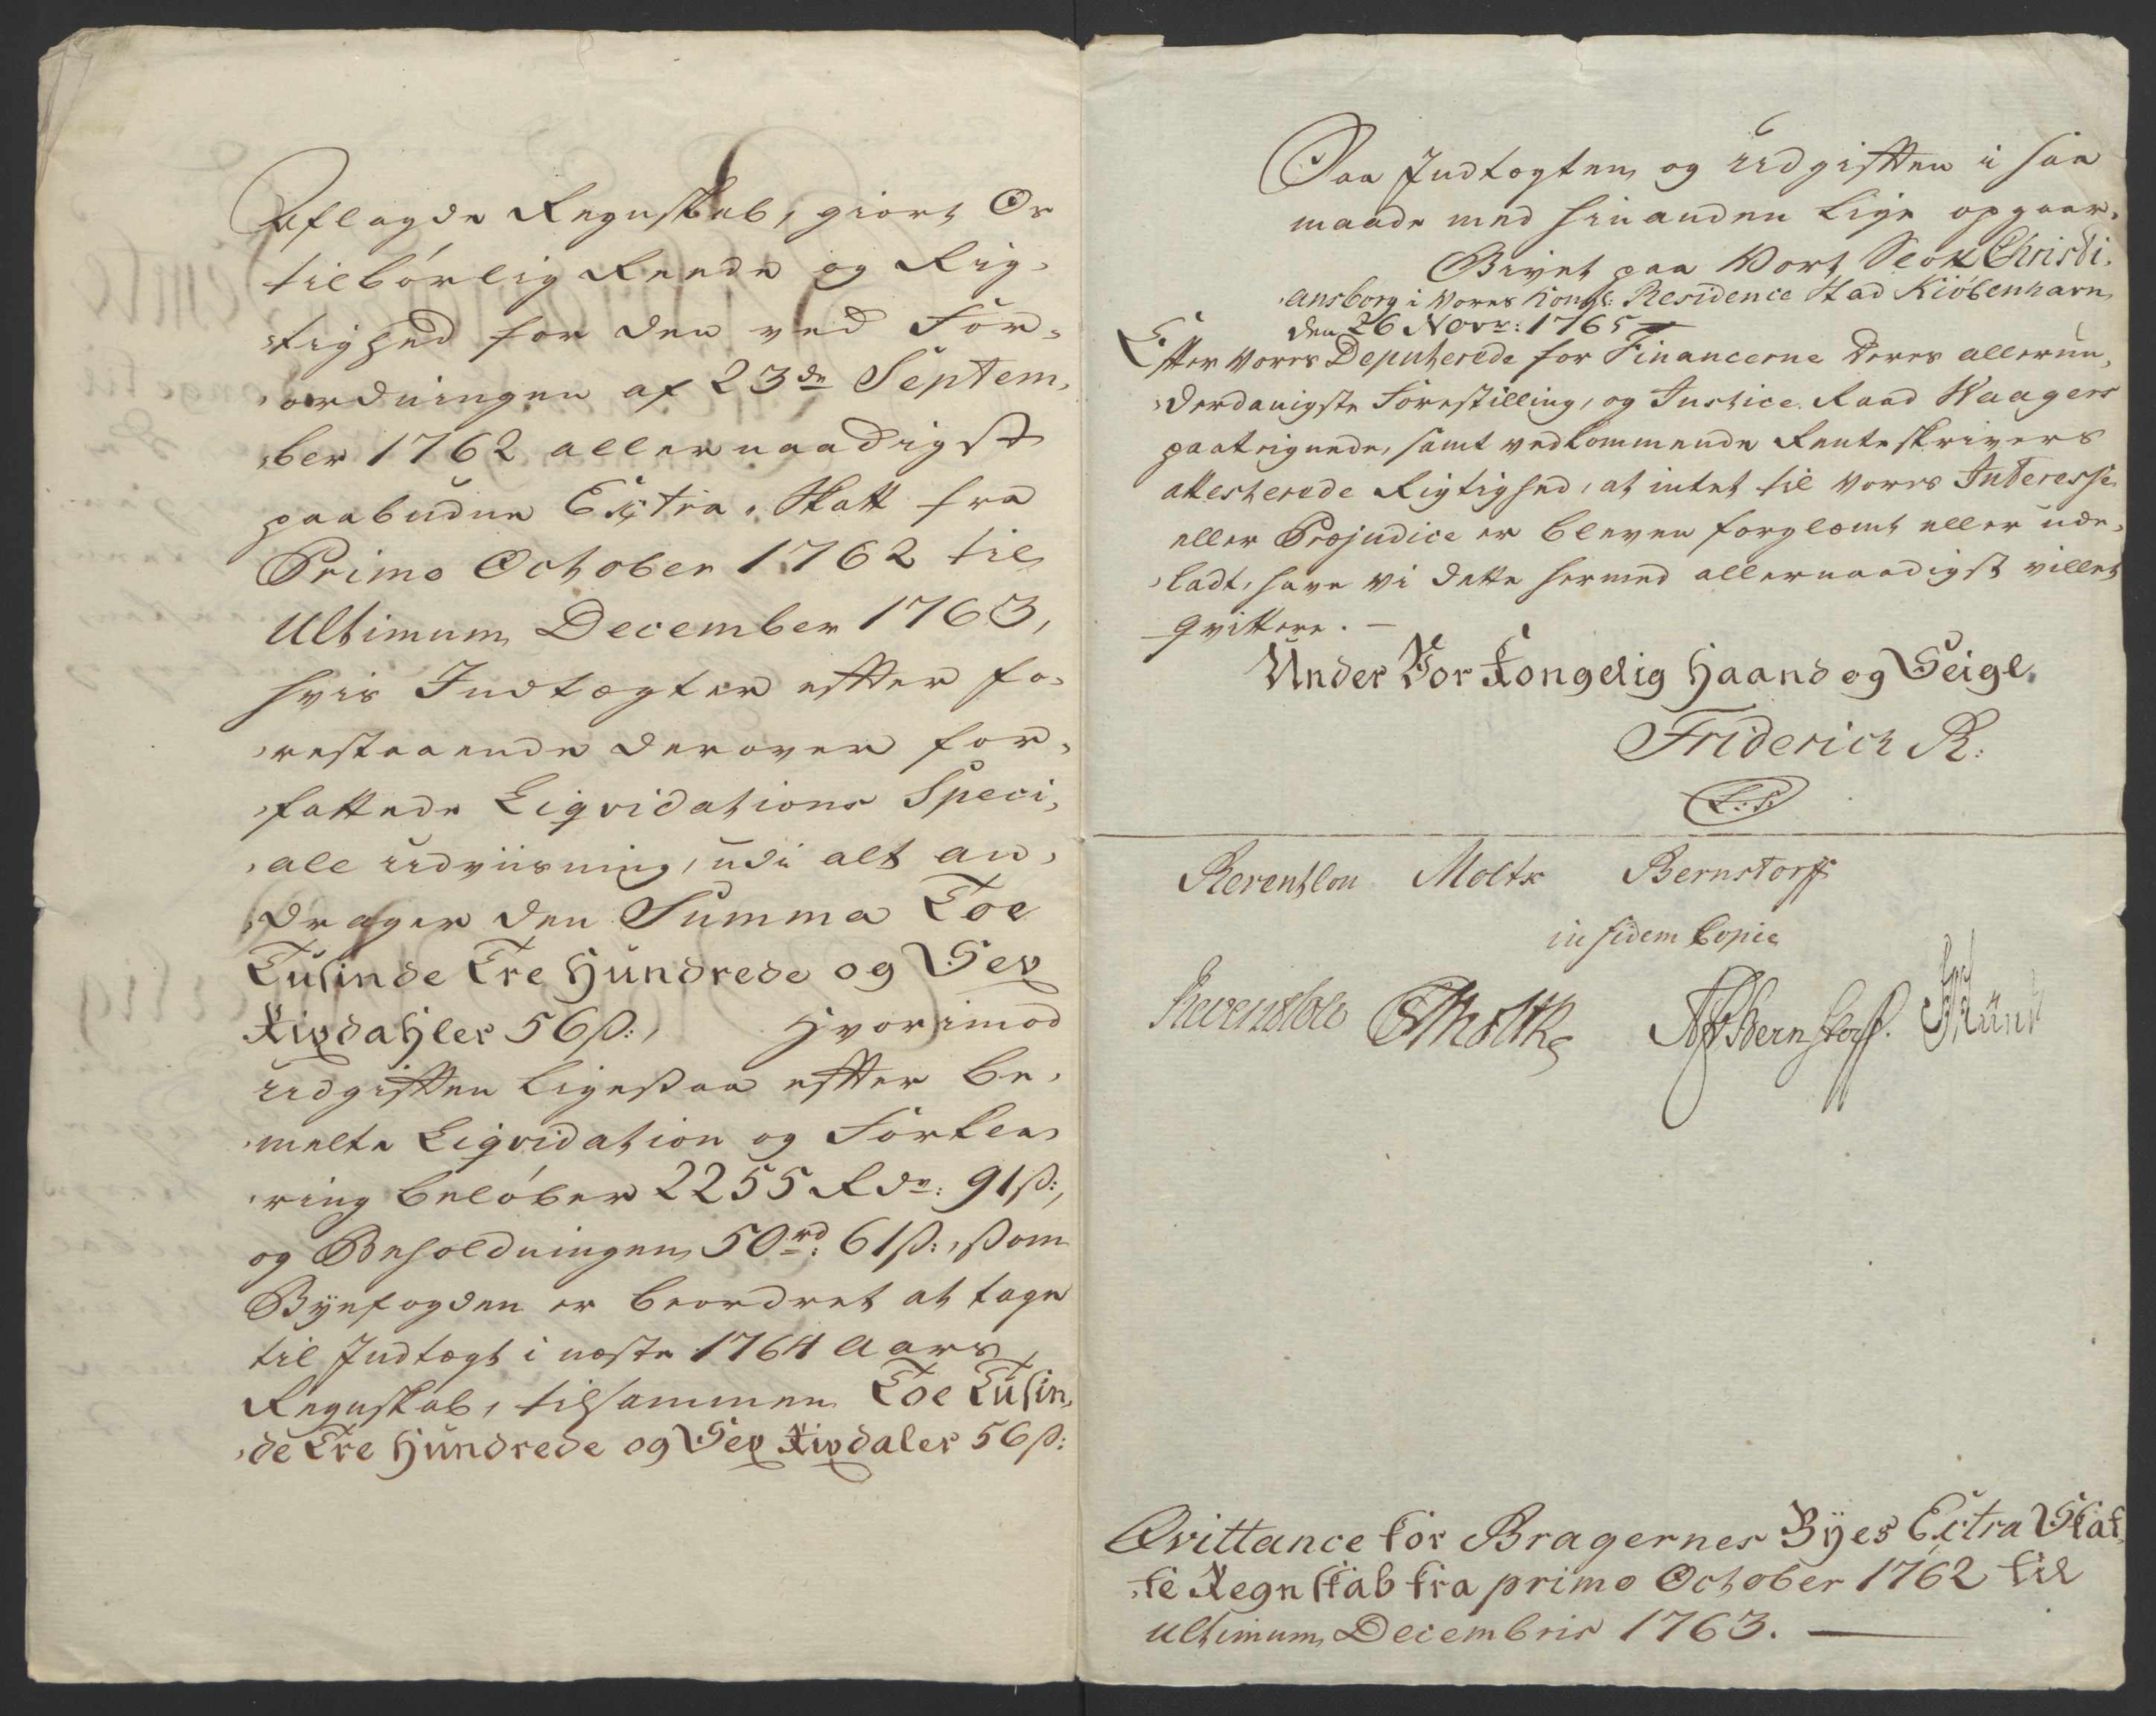 Aflagde Regnskab, giort Os
tilbørlig Reede og Rig-
,tighed for den ved For-
,ordningen af 23de Septem-
,ber 1762 allernaadigst
paabudne Extra-Skatt fra
Primo October 1762 til
Ultimum December 1763,
hvis Indtægter efter fo-
,restaaende derover for-
,fattede Liqvidations Speci-
,ale udviisning, udi alt an-
,drager den Summa Toe
Tusinde Tre Hundrede og Sex
Rixdahler 56 ß:, Hvorimod
udgiften ligesaa efter be-
,melte Liqvidation og Forkla-
,ring beløber 2255 Rdr: 91 ß:,
og Beholdningen 50 rd: 61 ß:, som
Byefogden er beordret at tage
til Indtægt i næste 1764 Aars
Regnskab, tilsammen Toe Tusin-
,de Tre Hundrede og Sex Rixdaler 56 ß:
Saa Indtægten og udgiften i saa
maade med hinanden lige opgaar.
Givet paa Vort Slot Christi-
,ansborg i Vores Kongl: Residence Stad Kiøbenhavn
den 26 Novr: 1765
Efter Vores Deputerede for Financerne deres allerun-
,derdanigste Forestilling, og Justice Raad Waagers
paategnede, samt vedkommende Renteskrivers
attesterede Rigtighed, at intet til Vores Interesse
eller Præjudice er bleven forglemt eller ude-
,ladt, have vi dette hermed allernaadigst villet
qvittere. —
Under Vor Kongelig Haand og Seigl.
Friderich R:
L:S:
Reventlou Moltke Bernstorff
in fidem Copiæ
Reventlow Moltke Bernstorff.
Qvittance for Bragernes Byes Extra Skat-
,te Regnskab fra primo October 1762 til
ultimum Decembris 1763. —